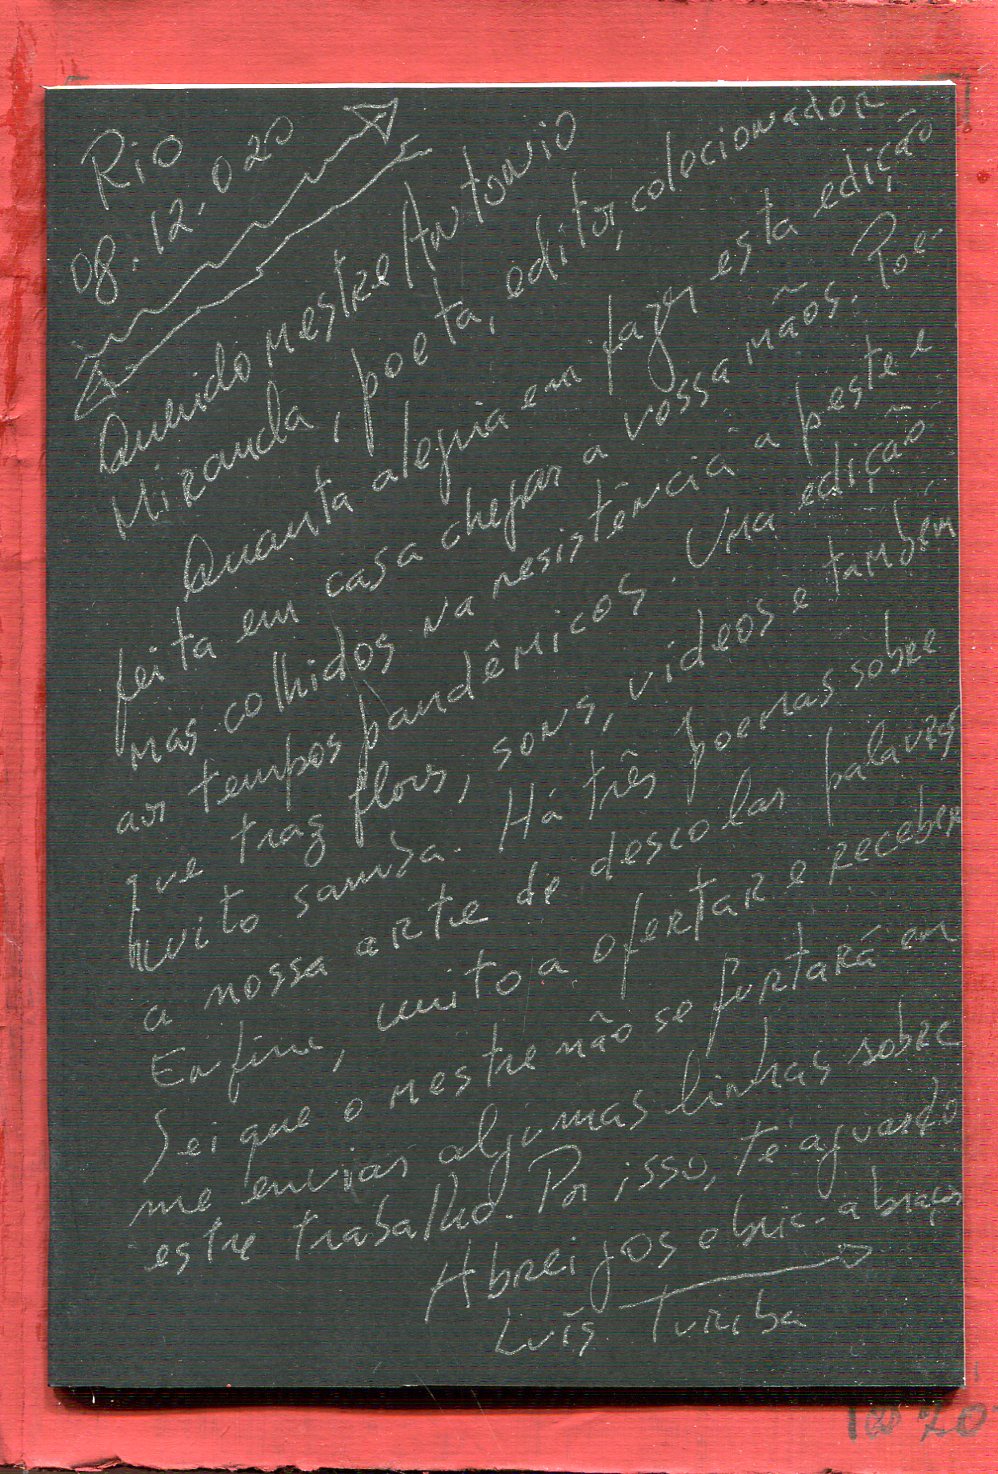 Rio
08.12.020
Querido mestre Antonio
Miranda, poeta, editor, colocionador
Quanta alegria em fazer esta edição
feita em casa chegar a vossa mãos. Poe-
mas colhidos na resistência a peste e
aos tempos pandêmicos. Uma edição
que traz flores, sons, vídeos e também
muito samba. Há três poemas sobre
a nossa arte de descolar palavras
Enfim, muito a ofertar e receber
Sei que o mestre não se furtará em
me enviar algumas linhas sobre
este trabalho. Por isso, te aguardo
Abreijos e abraços
Luis Turiba